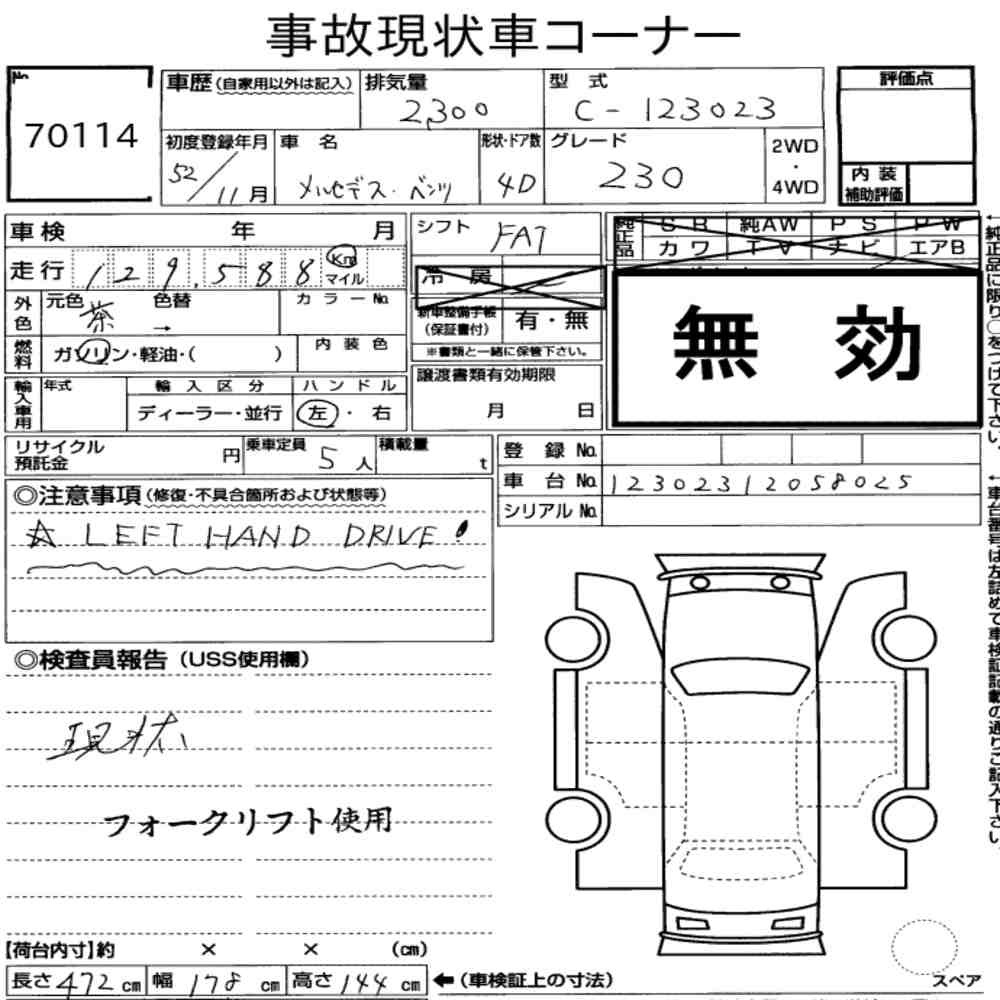 事故現状車コーナー
No.
70114
車歴(自家用以外は記入) 排気量 型式
2,300 C-123023
初度登録年月 車名 形状・ドア数 グレード 2WD・4WD
52/11月 メルセデス・ベンツ 4D 230
評価点
内装補助評価
車検 年 月
シフト FAT
走行 129,588 Km マイル
冷房
純正品 SR 純AW PS PW
カワ TV ナビ エアB
外色 元色 茶 色替 → カラーNo.
新車整備手帳(保証書付) 有・無
※書類と一緒に保管下さい。
無効
燃料 ガソリン・軽油・( ) 内装色
輸入車用 年式 輸入区分 ハンドル
ディーラー・並行 左・右
譲渡書類有効期限
月 日
←純正品に限り○をつけて下さい。
リサイクル預託金 円 乗車定員 5人 積載量 t
登録No.
車台No. 12302312058025
シリアルNo.
←車台番号は左詰めで車検証記載の通りご記入下さい。
◎注意事項(修復・不具合箇所および状態等)
☆ LEFT HAND DRIVE!
◎検査員報告(USS使用欄)
現状
フォークリフト使用
【荷台内寸】約 × × (cm)
長さ472cm 幅178cm 高さ144cm ←(車検証上の寸法)
スペア